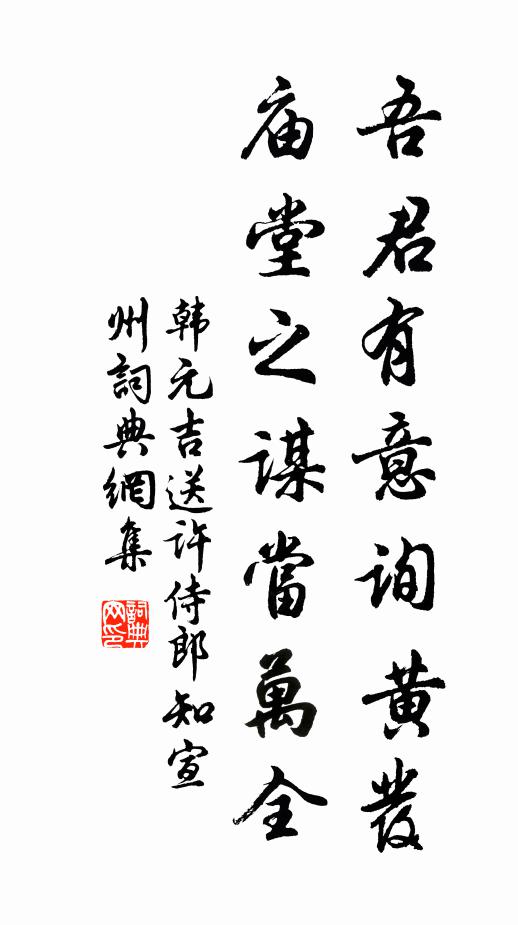 吾君有意詢黃發
庙堂之謀當萬全
韩元吉送许侍郎知宣
州詞典網集
詞典网印